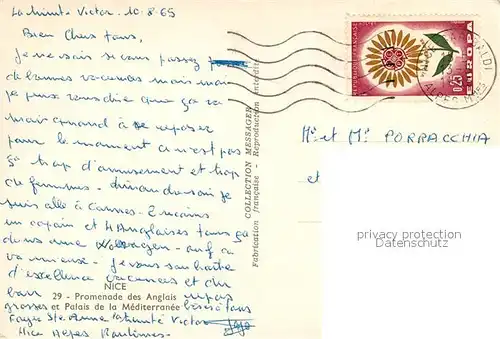 La trinité Victor. 10.8.65
Bien Chers tous,
Je ne sais si vous passez
de bonnes vacances mais moi
je puis vous dire que ça va
mais quand à se reposer
pour le moment ce n'est pas
ça trop d'amusement et trop
de femmes - dimanche soir je
suis allé à Cannes - 2 ricains
un copain et 4 Anglaises tous ça
dans une Wolsvagen - enf. ça
va mieux - Je vous souhaite
d'excellence vacances et du
bon
NICE
29 - Promenade des Anglais repos
grosses et Palais de la Méditerranée bises à tous
Foyer Ste Anne la trinité Victor
Nice Alpes Maritimes -
COLLECTION MESSAGER
Fabrication française - Reproduction interdite
REPUBLIQUE FRANÇAISE
POSTES
0,25
EUROPA
ALPES Mmes
Mr et Me PORRACCHIA
et
privacy protection
Datenschutz